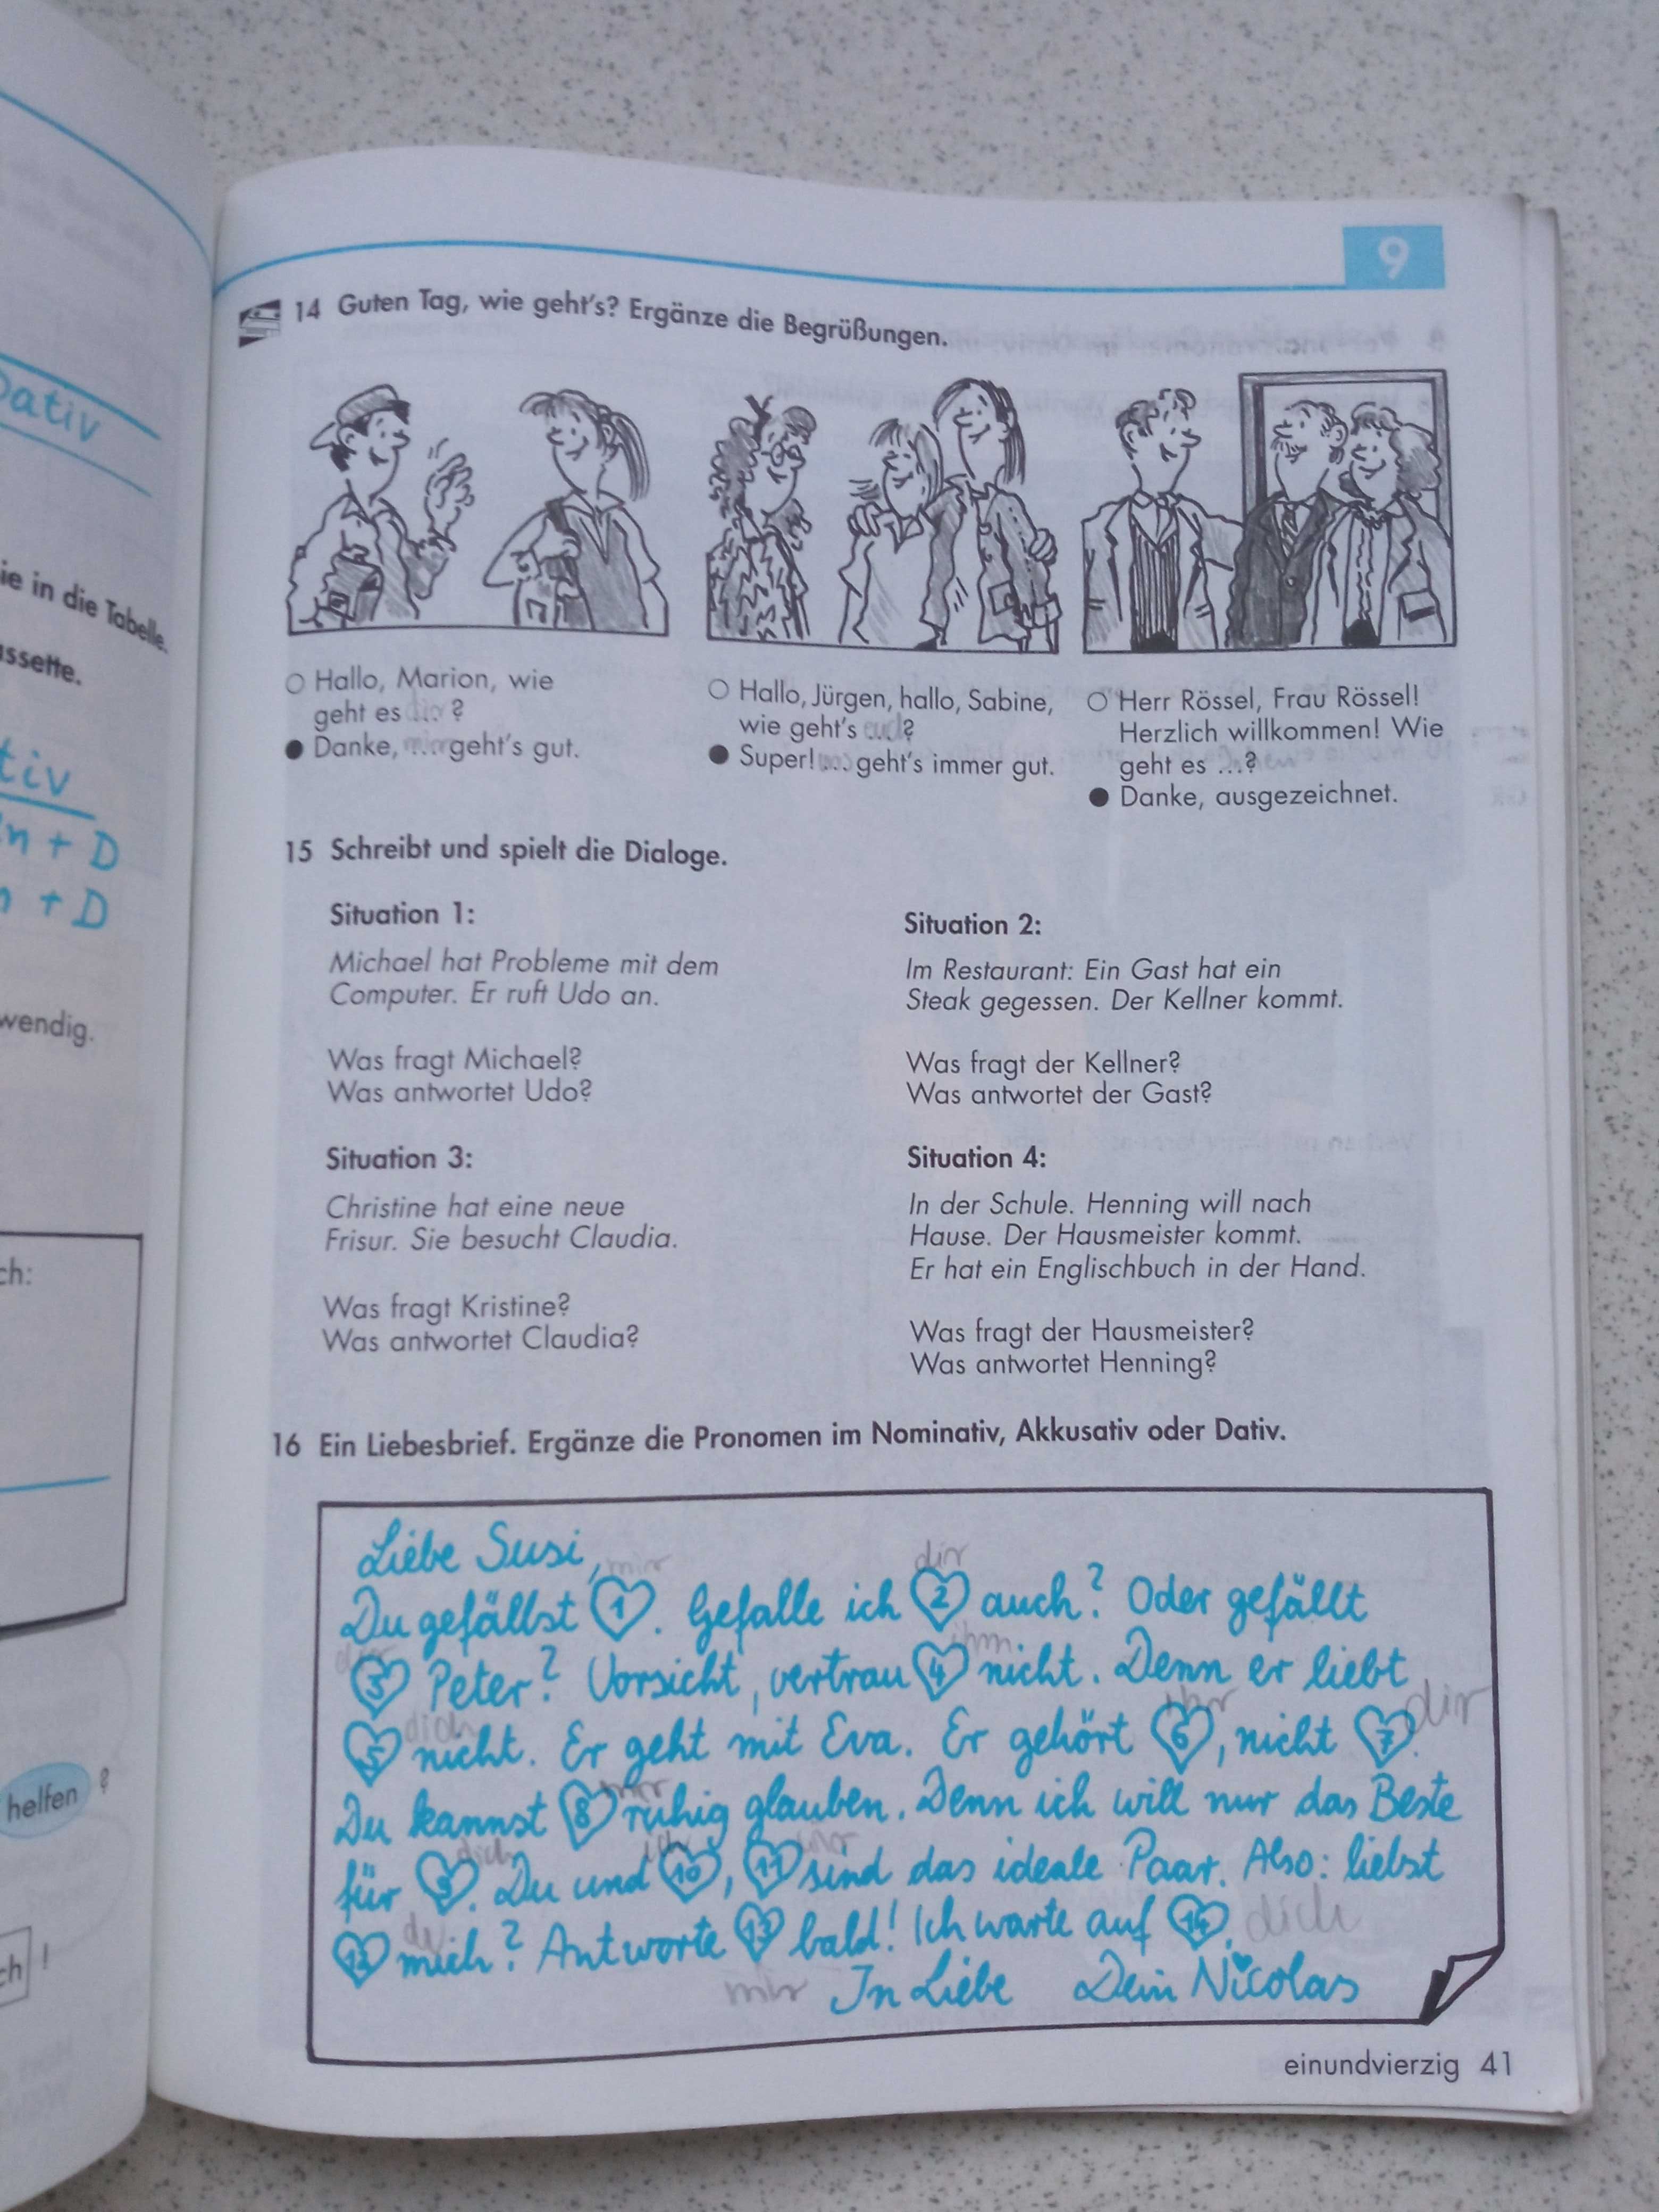 Dativ
ie in die Tabelle.
ssette.
tiv
n + D
n + D
wendig.
ch:
helfen ?
ch !
9
14 Guten Tag, wie geht's? Ergänze die Begrüßungen.
○ Hallo, Marion, wie
geht es dir ... ?
● Danke, mir ... geht's gut.
○ Hallo, Jürgen, hallo, Sabine,
wie geht's euch ...?
● Super! uns ... geht's immer gut.
○ Herr Rössel, Frau Rössel!
Herzlich willkommen! Wie
geht es ...? Ihnen
● Danke, ausgezeichnet.
15 Schreibt und spielt die Dialoge.
Situation 1:
Michael hat Probleme mit dem
Computer. Er ruft Udo an.
Was fragt Michael?
Was antwortet Udo?
Situation 2:
Im Restaurant: Ein Gast hat ein
Steak gegessen. Der Kellner kommt.
Was fragt der Kellner?
Was antwortet der Gast?
Situation 3:
Christine hat eine neue
Frisur. Sie besucht Claudia.
Was fragt Kristine?
Was antwortet Claudia?
Situation 4:
In der Schule. Henning will nach
Hause. Der Hausmeister kommt.
Er hat ein Englischbuch in der Hand.
Was fragt der Hausmeister?
Was antwortet Henning?
16 Ein Liebesbrief. Ergänze die Pronomen im Nominativ, Akkusativ oder Dativ.
Liebe Susi,
mir dir
Du gefällst 1. Gefalle ich 2 auch? Oder gefällt
dir ihm
3 Peter? Vorsicht, vertrau 4 nicht. Denn er liebt
dich ihr dir
5 nicht. Er geht mit Eva. Er gehört 6, nicht 7.
mir
Du kannst 8 ruhig glauben. Denn ich will nur das Beste
dich ich wir
für 9. Du und 10, 11 sind das ideale Paar. Also: liebst
du
12 mich? Antworte 13 bald! Ich warte auf 14. dich
mir In Liebe Dein Nicolas
einundvierzig 41